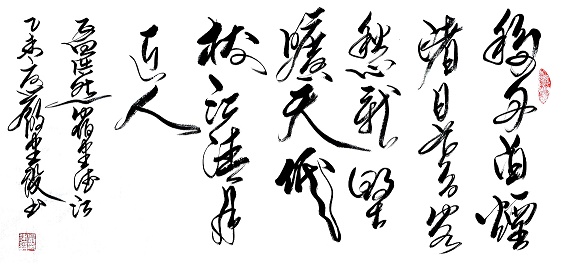 移舟泊煙
渚日暮客
愁新野
曠天低
樹江清月
近人
孟浩然宿建德江
乙未夏書